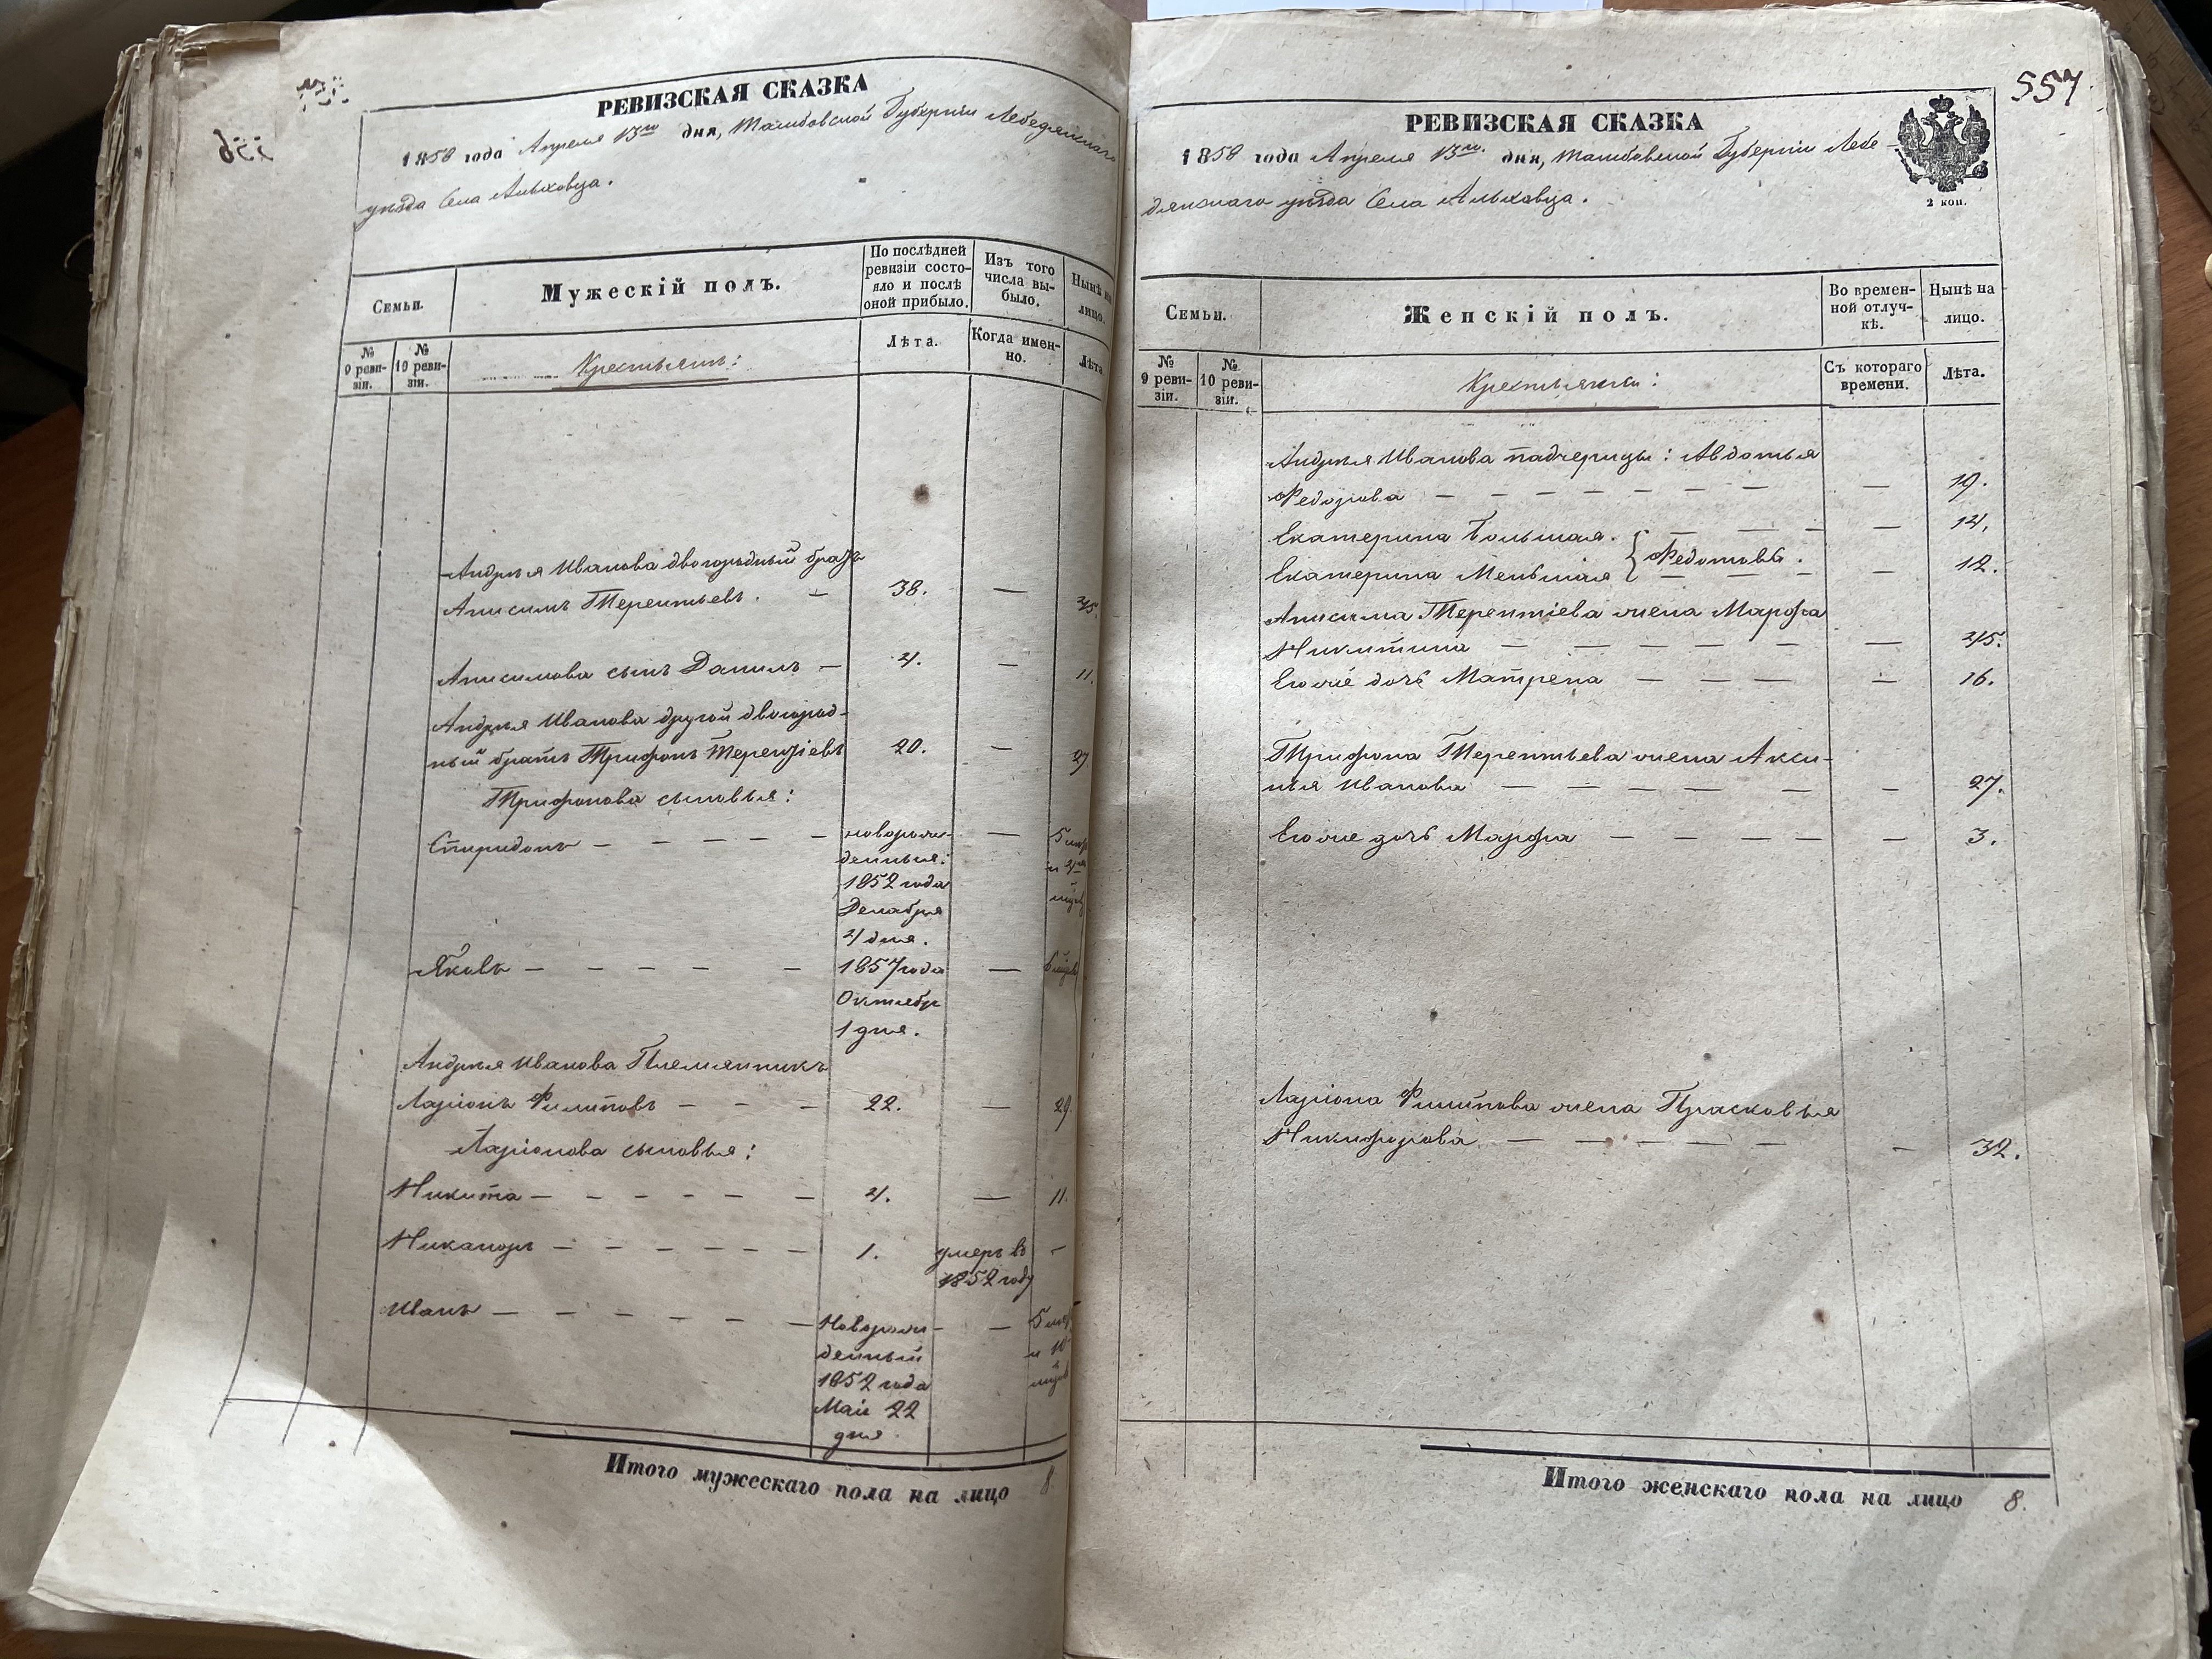 556
РЕВИЗСКАЯ СКАЗКА
1858 года Апреля 13го дня, Тамбовской Губерніи Лебедянскаго
уѣзда Села Альховца.
Семьи.
Мужескій полъ.
По послѣдней ревизіи состояло и послѣ оной прибыло.
Изъ того числа выбыло.
Нынѣ на лицо.
№ 9 ревизіи.
№ 10 ревизіи.
Крестьянъ:
Лѣта.
Когда именно.
Лѣта
Андрея Иванова двоюродный братъ
Анисимъ Терентьевъ. — 38. — 45.
Анисимова сынъ Данилъ — 4. — 11.
Андрея Иванова другой двоюрод-
ный братъ Трифонъ Терентіевъ 20. — 27
Трифонова сыновья:
Спиридонъ — — — — — новорож- — 5 лѣт
денныя: и 4
1852 года
Декабря
4 дня.
Яковъ — — — — — 1857 года — 6
Октябр
1 дня.
Андрея Иванова Племянникъ
Ларіонъ Филиповъ — — — 22. — 29.
Ларіонова сыновья:
Никита — — — — — — 4. — 11.
Никаноръ — — — — — — 1. умеръ въ —
1852 году
Иванъ — — — — — — Новорож- — 5 лѣт
денный и 10
1852 года
Маія 22
дня.
Итого мужескаго пола на лицо 8
557.
РЕВИЗСКАЯ СКАЗКА
1858 года Апреля 13го. дня, Тамбовской Губерніи Лебе-
дянскаго уѣзда Села Альховца.
2 коп.
Семьи.
Женскій полъ.
Во временной отлучкѣ.
Нынѣ на лицо.
№ 9 ревизіи.
№ 10 ревизіи.
Крестьянки:
Съ котораго времени.
Лѣта.
Андрея Иванова падчерицы: Авдотья
Федорова — — — — — — — — 19.
Екатерина Большая. — — — — 14.
Екатерина Меньшая { Федотовы. — 12.
Анисима Терентіева жена Марфа
Никитина — — — — — — 45.
Его же дочь Матрена — — — — 16.
Трифона Терентьева жена Акси-
нья Иванова — — — — — — — 27.
Его же дочь Марфа — — — — — — 3.
Ларіона Филипова жена Прасковья
Никифорова — — — — — — 32.
Итого женскаго пола на лицо 8.